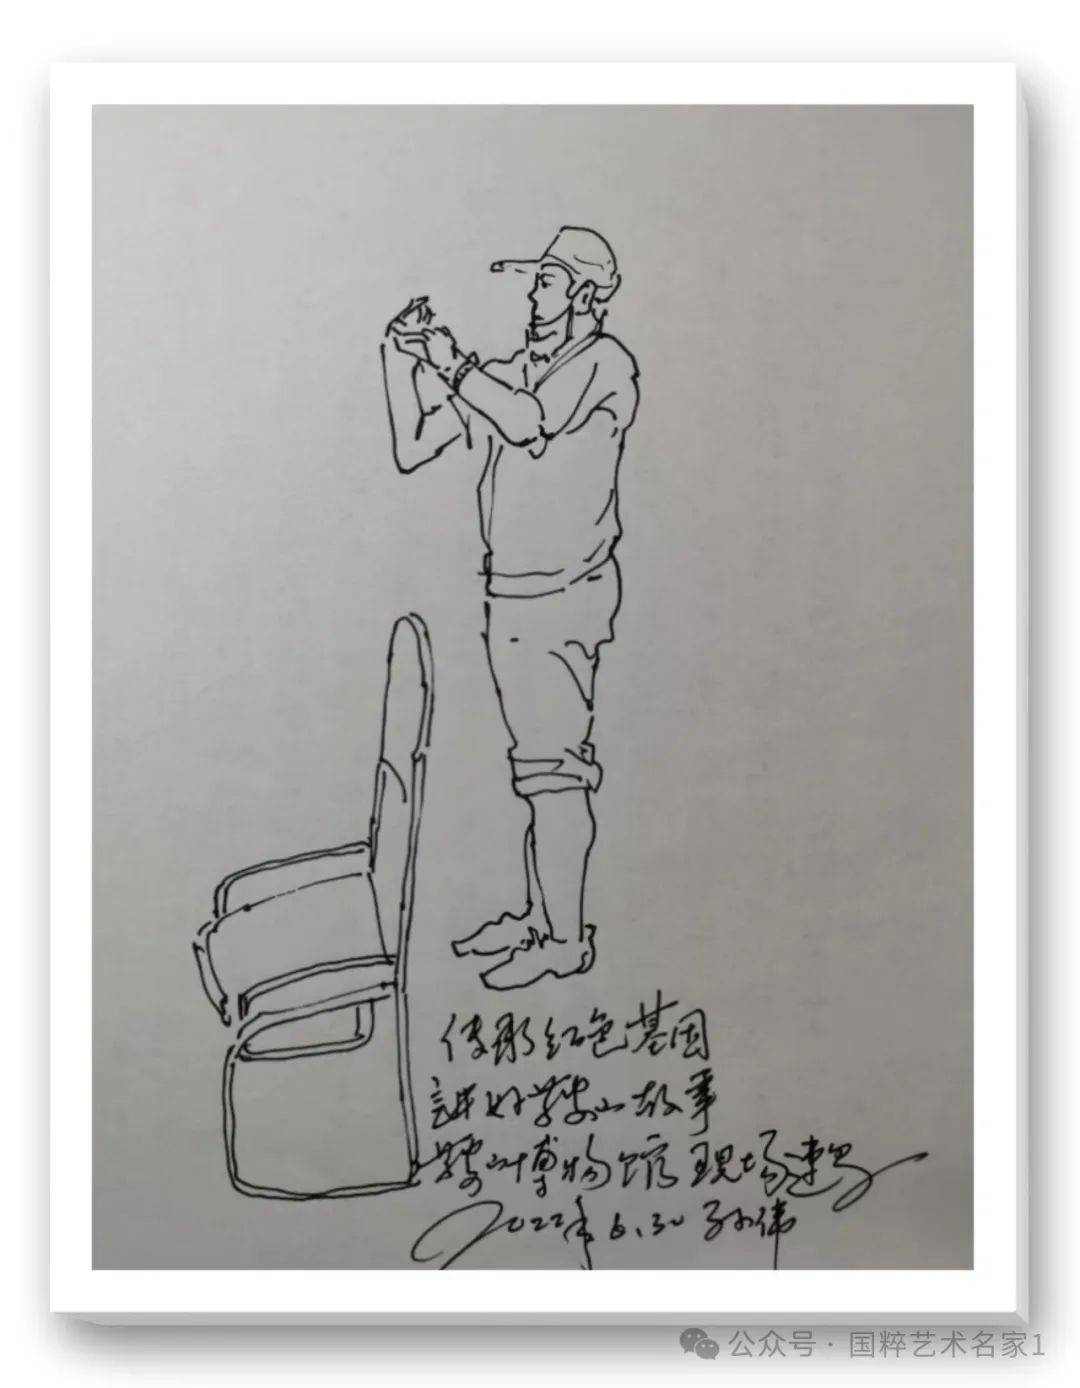 传承红色基因
讲好鞍山故事
鞍山博物馆现场速写
2022年6.30 孙伟
公众号·国粹艺术名家1